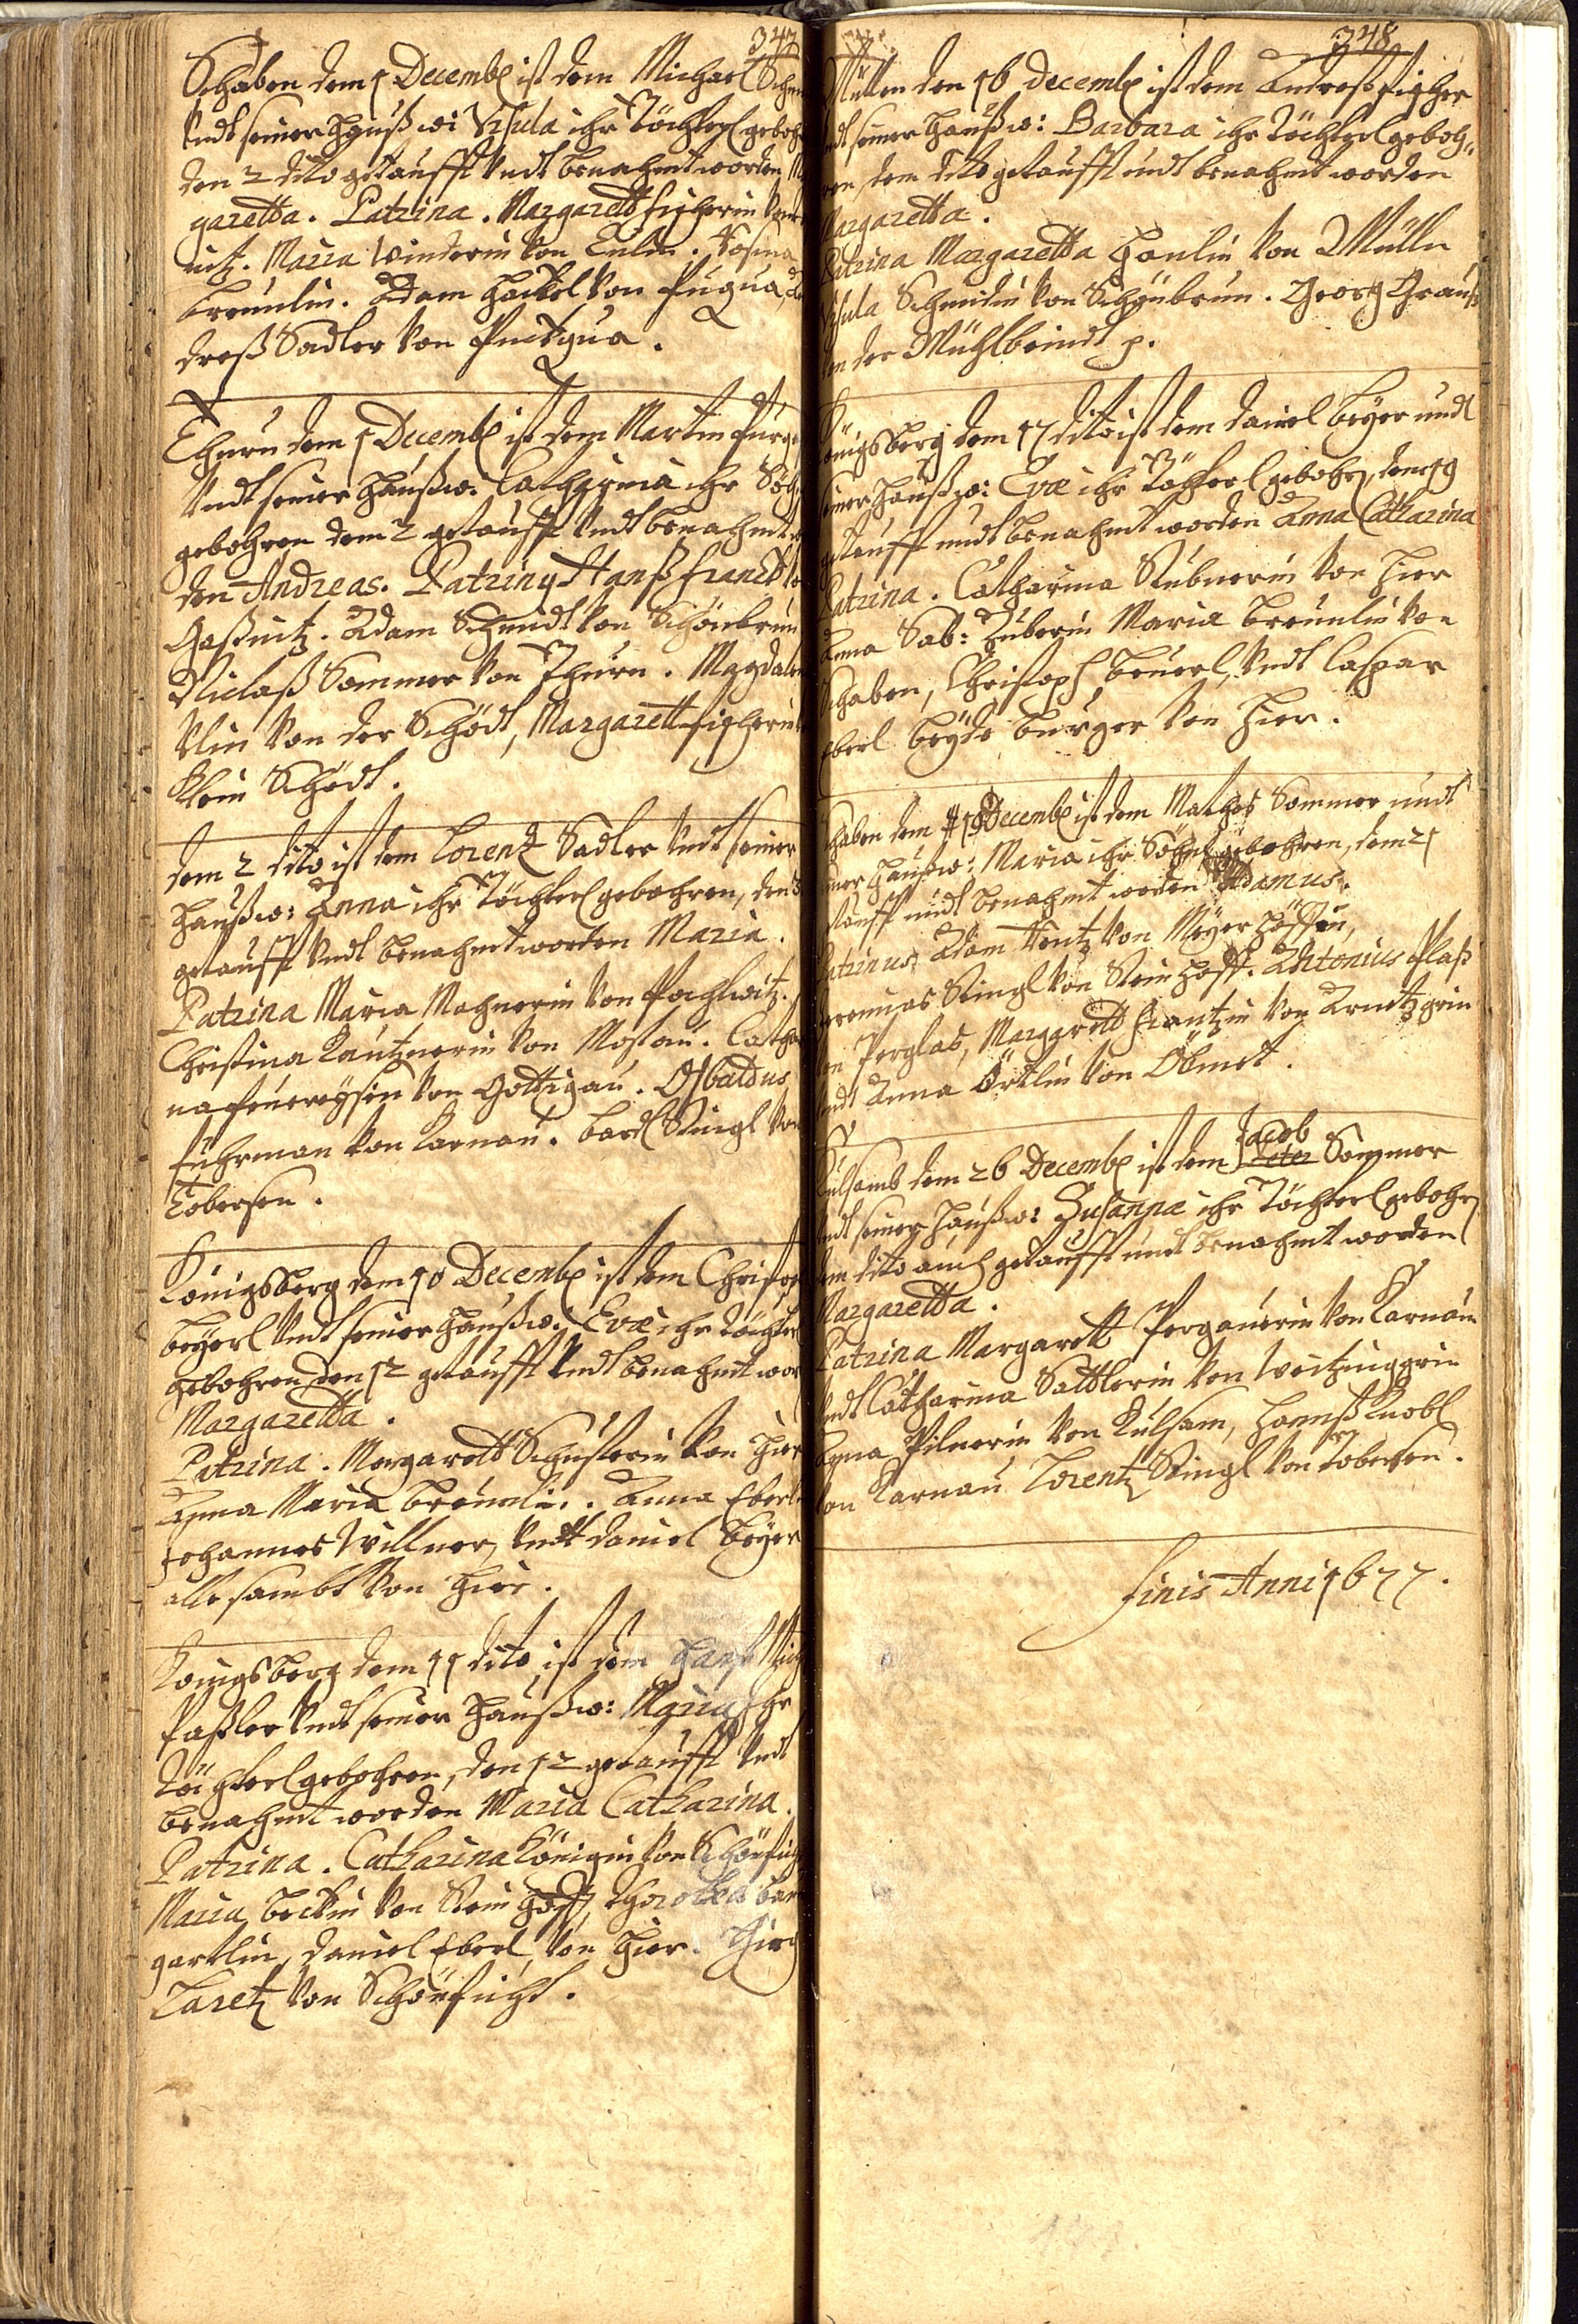 347
Schaben dem 1 Decemb ist dem Michael
undt seiner Haußw: Ursula ihr Töchterl
den 2 dito getaufft undt benahmt worden
garetta. Patrina. Margaretta Fischerin
Maria Winderin von
Breunlin. Adam Hackel von
dreß Sadler von
Thurn dem 1 Decemb ist dem Martin
undt seiner Haußw: Catharina ihr
gebohren dem 2 getaufft undt benahmt
den Andreas. Patriny Hanß Franck
Gaßnitz. Adam Schmidt von Schönbrun
Niclaß Sommer von Thurn. Magdalen
von der Schödt, Margarett Fischerin
klein Schödt.
dem 2 dito ist dem Lorentz Sadler undt seiner
Haußw: Anna ihr Töchterl gebohren, den 3
getaufft undt benahmt worden Maria.
Patrina Maria Machnerin von Pochlwitz.
Christina von Mostau. Catha
na von Gottigau. Oßbaldus
Fuhrman von Karnau. Stingl von
Tobersen.
Königsberg dem 10 Decemb ist dem Christop
Beyerl undt seiner Haußw: Evæ ihr Töchterl
gebohren den 12 getaufft undt benahmt wor
Margaretta.
Patrina. Margarett Schusterin von Hier
Anna Maria Breunlin. Anna Eberl
Johannes Willner, undt Daniel Beyer
alle sambt von Hier.
Königsberg dem 11 dito ist dem Hanß
Paßler undt seiner Haußw: Maria ihr
Töchterl gebohren, den 12 getaufft undt
benahmt worden Maria Catharina.
Patrina. Catharina Königin von Schönficht
Maria Beckin von Steinhoff, Dhorothea
gartlin, Daniel Eberl, von Hier.
Laretz von Schönficht.
348
Mülln den 16 decemb ist dem Andreß Fischer
undt seiner Haußw: Barbara ihr Töchterl geboh„
ren, dem dito getaufft undt benahmt worden
Margaretta.
Patrina Margaretta Hanlin von Mülln
Ursula Schmidin von Schönbrun. Georg
von der Mühlbeindt p.
Königsberg dem 17 dito ist dem Daniel Beyer undt
seiner Haußw: Evæ ihr Töchterl gebohr, dem 19
getaufft undt benahmt worden Anna Catharina
Patrina. Catharina Stübnerin von Hier
Anna Sab: Huberin Maria Breunlin von
Schaben, Christoph Beuerl, undt Caspar
Eberl beyde burger von Hier.
Schaben dem 19 Decemb ist dem Mathes Sommer undt
seiner Haußw: Maria ihr Söhnl gebohren, dem 21
getaufft undt benahmt worden Adamus.
Patrinus, Adam Hentz von Meyerhöffen,
Stingl von Steinhoff. Antonius Plaß
von Perglas, Margarett Frantzin von Arnitzgrin
undt Anna Örtlin von
Kulsamb dem 26 Decemb ist dem Jacob Peter Sommer
undt seiner Haußw: Susannæ ihr Töchterl gebohr
dem dito auch getaufft undt benahmt worden
Margaretta.
Patrina Margarett Pergauerin von Karnau
undt Catharina Sattlerin von
Anna Pilnerin von Kulsam, Hannß Knobl
von Karnau Lorentz Stingl von Tobersen.
Finis Anni 1677.